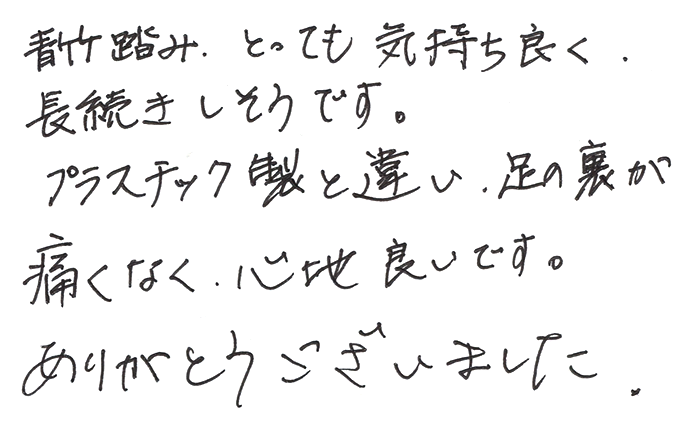 青竹踏み、とっても気持ち良く、
長続きしそうです。
プラスチック製と違い、足の裏が
痛くなく、心地良いです。
ありがとうございました。